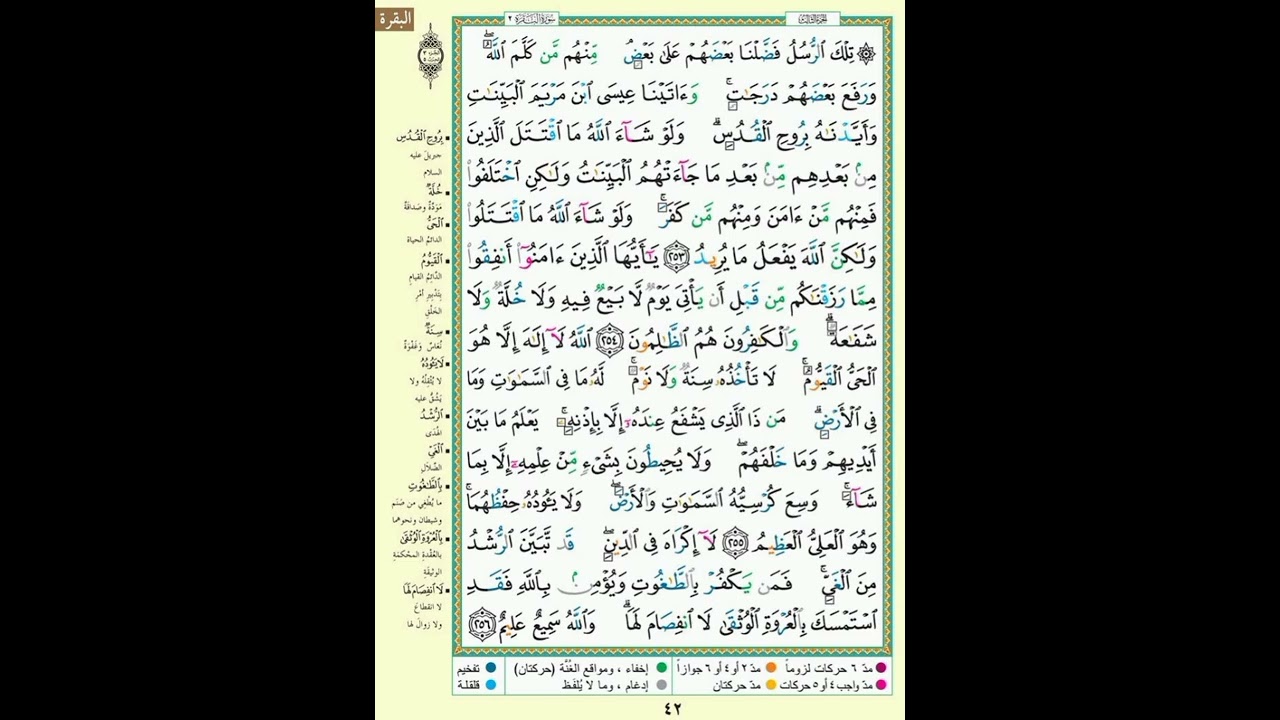 البقرة
سورة البقرة ٢
الجزء الثالث
۞ تِلْكَ ٱلرُّسُلُ فَضَّلْنَا بَعْضَهُمْ عَلَىٰ بَعْضٍۘ مِّنْهُم مَّن كَلَّمَ ٱللَّهُۖ
وَرَفَعَ بَعْضَهُمْ دَرَجَٰتٍۚ وَءَاتَيْنَا عِيسَى ٱبْنَ مَرْيَمَ ٱلْبَيِّنَٰتِ
وَأَيَّدْنَٰهُ بِرُوحِ ٱلْقُدُسِۗ وَلَوْ شَآءَ ٱللَّهُ مَا ٱقْتَتَلَ ٱلَّذِينَ
مِنۢ بَعْدِهِم مِّنۢ بَعْدِ مَا جَآءَتْهُمُ ٱلْبَيِّنَٰتُ وَلَٰكِنِ ٱخْتَلَفُوا۟
فَمِنْهُم مَّنْ ءَامَنَ وَمِنْهُم مَّن كَفَرَۚ وَلَوْ شَآءَ ٱللَّهُ مَا ٱقْتَتَلُوا۟
وَلَٰكِنَّ ٱللَّهَ يَفْعَلُ مَا يُرِيدُ ٢٥٣ يَٰٓأَيُّهَا ٱلَّذِينَ ءَامَنُوٓا۟ أَنفِقُوا۟
مِمَّا رَزَقْنَٰكُم مِّن قَبْلِ أَن يَأْتِىَ يَوْمٌ لَّا بَيْعٌ فِيهِ وَلَا خُلَّةٌ وَلَا
شَفَٰعَةٌۗ وَٱلْكَٰفِرُونَ هُمُ ٱلظَّٰلِمُونَ ٢٥٤ ٱللَّهُ لَآ إِلَٰهَ إِلَّا هُوَ
ٱلْحَىُّ ٱلْقَيُّومُۚ لَا تَأْخُذُهُۥ سِنَةٌ وَلَا نَوْمٌۚ لَّهُۥ مَا فِى ٱلسَّمَٰوَٰتِ وَمَا
فِى ٱلْأَرْضِۗ مَن ذَا ٱلَّذِى يَشْفَعُ عِندَهُۥٓ إِلَّا بِإِذْنِهِۦۚ يَعْلَمُ مَا بَيْنَ
أَيْدِيهِمْ وَمَا خَلْفَهُمْۖ وَلَا يُحِيطُونَ بِشَىْءٍ مِّنْ عِلْمِهِۦٓ إِلَّا بِمَا
شَآءَۚ وَسِعَ كُرْسِيُّهُ ٱلسَّمَٰوَٰتِ وَٱلْأَرْضَۖ وَلَا يَـُٔودُهُۥ حِفْظُهُمَاۚ
وَهُوَ ٱلْعَلِىُّ ٱلْعَظِيمُ ٢٥٥ لَآ إِكْرَاهَ فِى ٱلدِّينِۖ قَد تَّبَيَّنَ ٱلرُّشْدُ
مِنَ ٱلْغَىِّۚ فَمَن يَكْفُرْ بِٱلطَّٰغُوتِ وَيُؤْمِنۢ بِٱللَّهِ فَقَدِ
ٱسْتَمْسَكَ بِٱلْعُرْوَةِ ٱلْوُثْقَىٰ لَا ٱنفِصَامَ لَهَاۗ وَٱللَّهُ سَمِيعٌ عَلِيمٌ ٢٥٦
بِرُوحِ ٱلْقُدُسِ
جبريل عليه
السلام
خُلَّةٌ
مَوَدَّةٌ وصَداقَةٌ
ٱلْحَىُّ
الدائمُ الحياة
ٱلْقَيُّومُ
الدّائِمُ القيامِ
بتَدْبيرِ أمْرِ
الخَلْقِ
سِنَةٌ
نُعَاسٌ وغَفْوَةٌ
لَا يَـُٔودُهُ
لا يُثْقِلُهُ ولا
يَشُقُّ عليه
ٱلرُّشْدُ
الهُدَى
ٱلْغَىِّ
الضَّلالِ
بِٱلطَّٰغُوتِ
ما يُطْغِي من صَنَم
وشيطان ونحوهما
بِٱلْعُرْوَةِ ٱلْوُثْقَىٰ
بالعُقْدةِ المحْكَمَةِ
الوثيقَة
لَا ٱنفِصَامَ لَهَا
لا انقطاعَ
ولا زوالَ لها
مدّ ٦ حركات لزوماً
مدّ ٢ أو ٤ أو ٦ جوازاً
إخفاء ، ومواقع الغُنَّة (حركتان)
تفخيم
مدّ واجب ٤ أو ٥ حركات
مدّ حركتان
إدغام ، وما لا يُلفَظ
قلقلة
٤٢